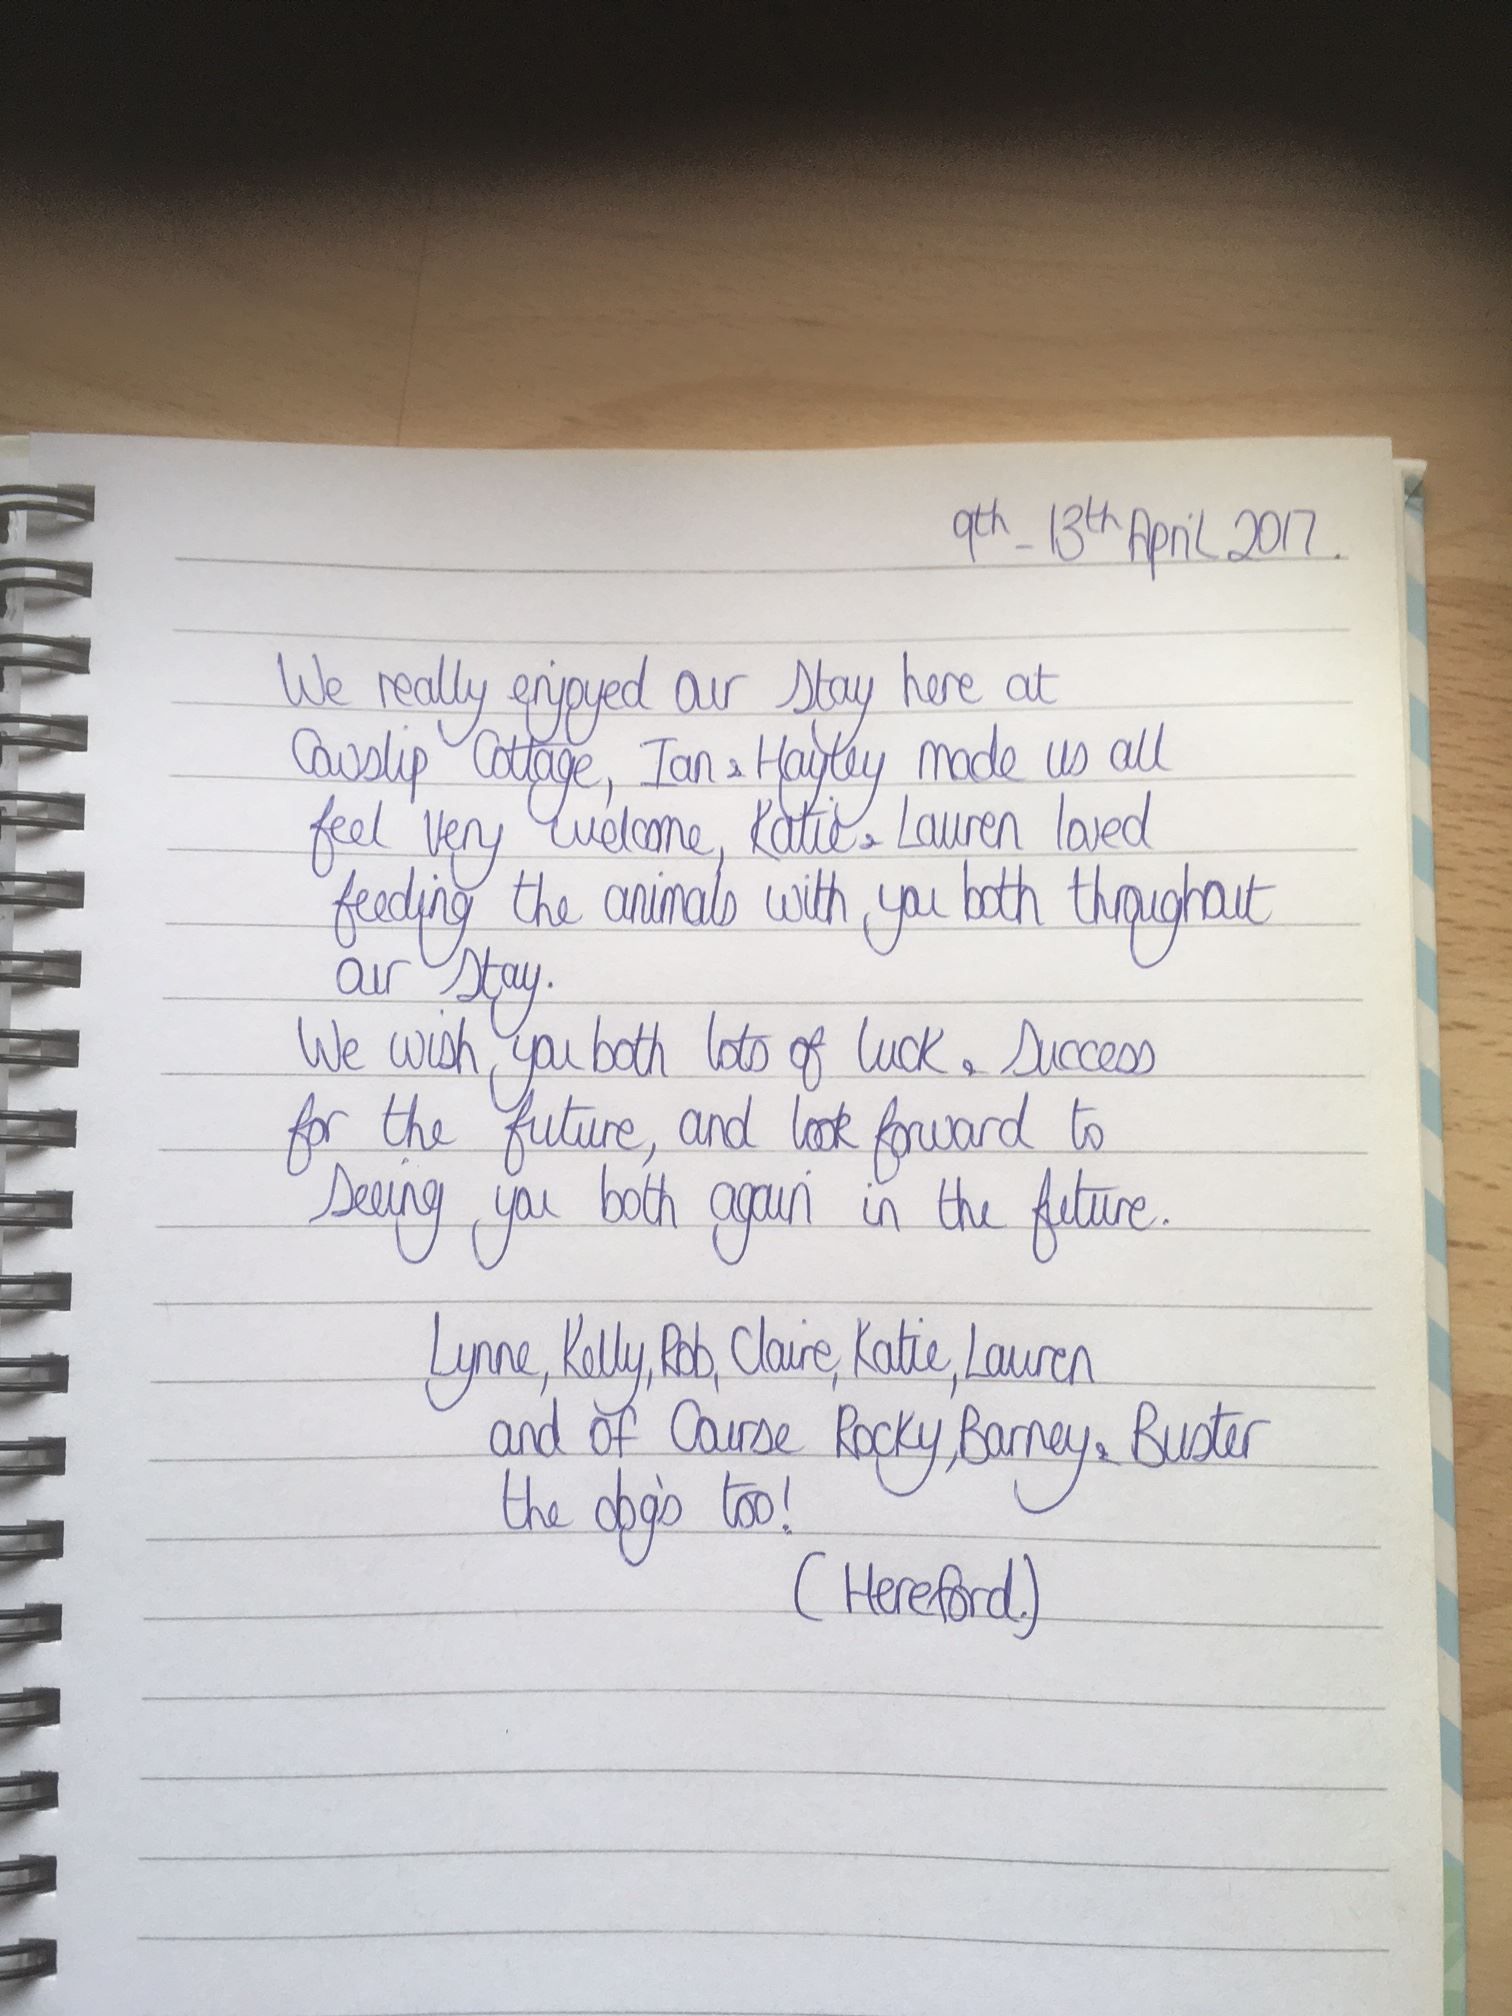 9th - 13th April 2017.
We really enjoyed our stay here at
Cowslip Cottage, Ian & Hayley made us all
feel very welcome, Katie & Lauren loved
feeding the animals with you both throughout
our stay.
We wish you both lots of luck & success
for the future, and look forward to
seeing you both again in the future.
Lynne, Kelly, Rob, Claire, Katie, Lauren
and of course Rocky, Barney & Buster
the dog's too!
(Hereford.)